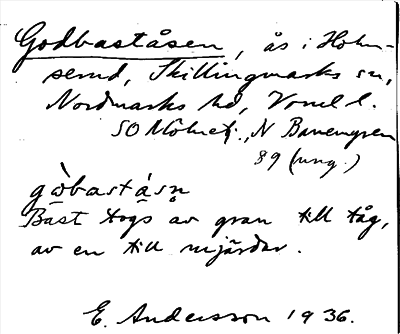 Godbaståsen, ås i Holm-
serud, Skillingmarks sn,
Nordmarks hd, Vrml l.
SO Mölnet., N Banengren
89 (ung.)
gòbastásn
Bast togs av gran till tåg,
av en till mjärdar.
E. Andersson 1936.